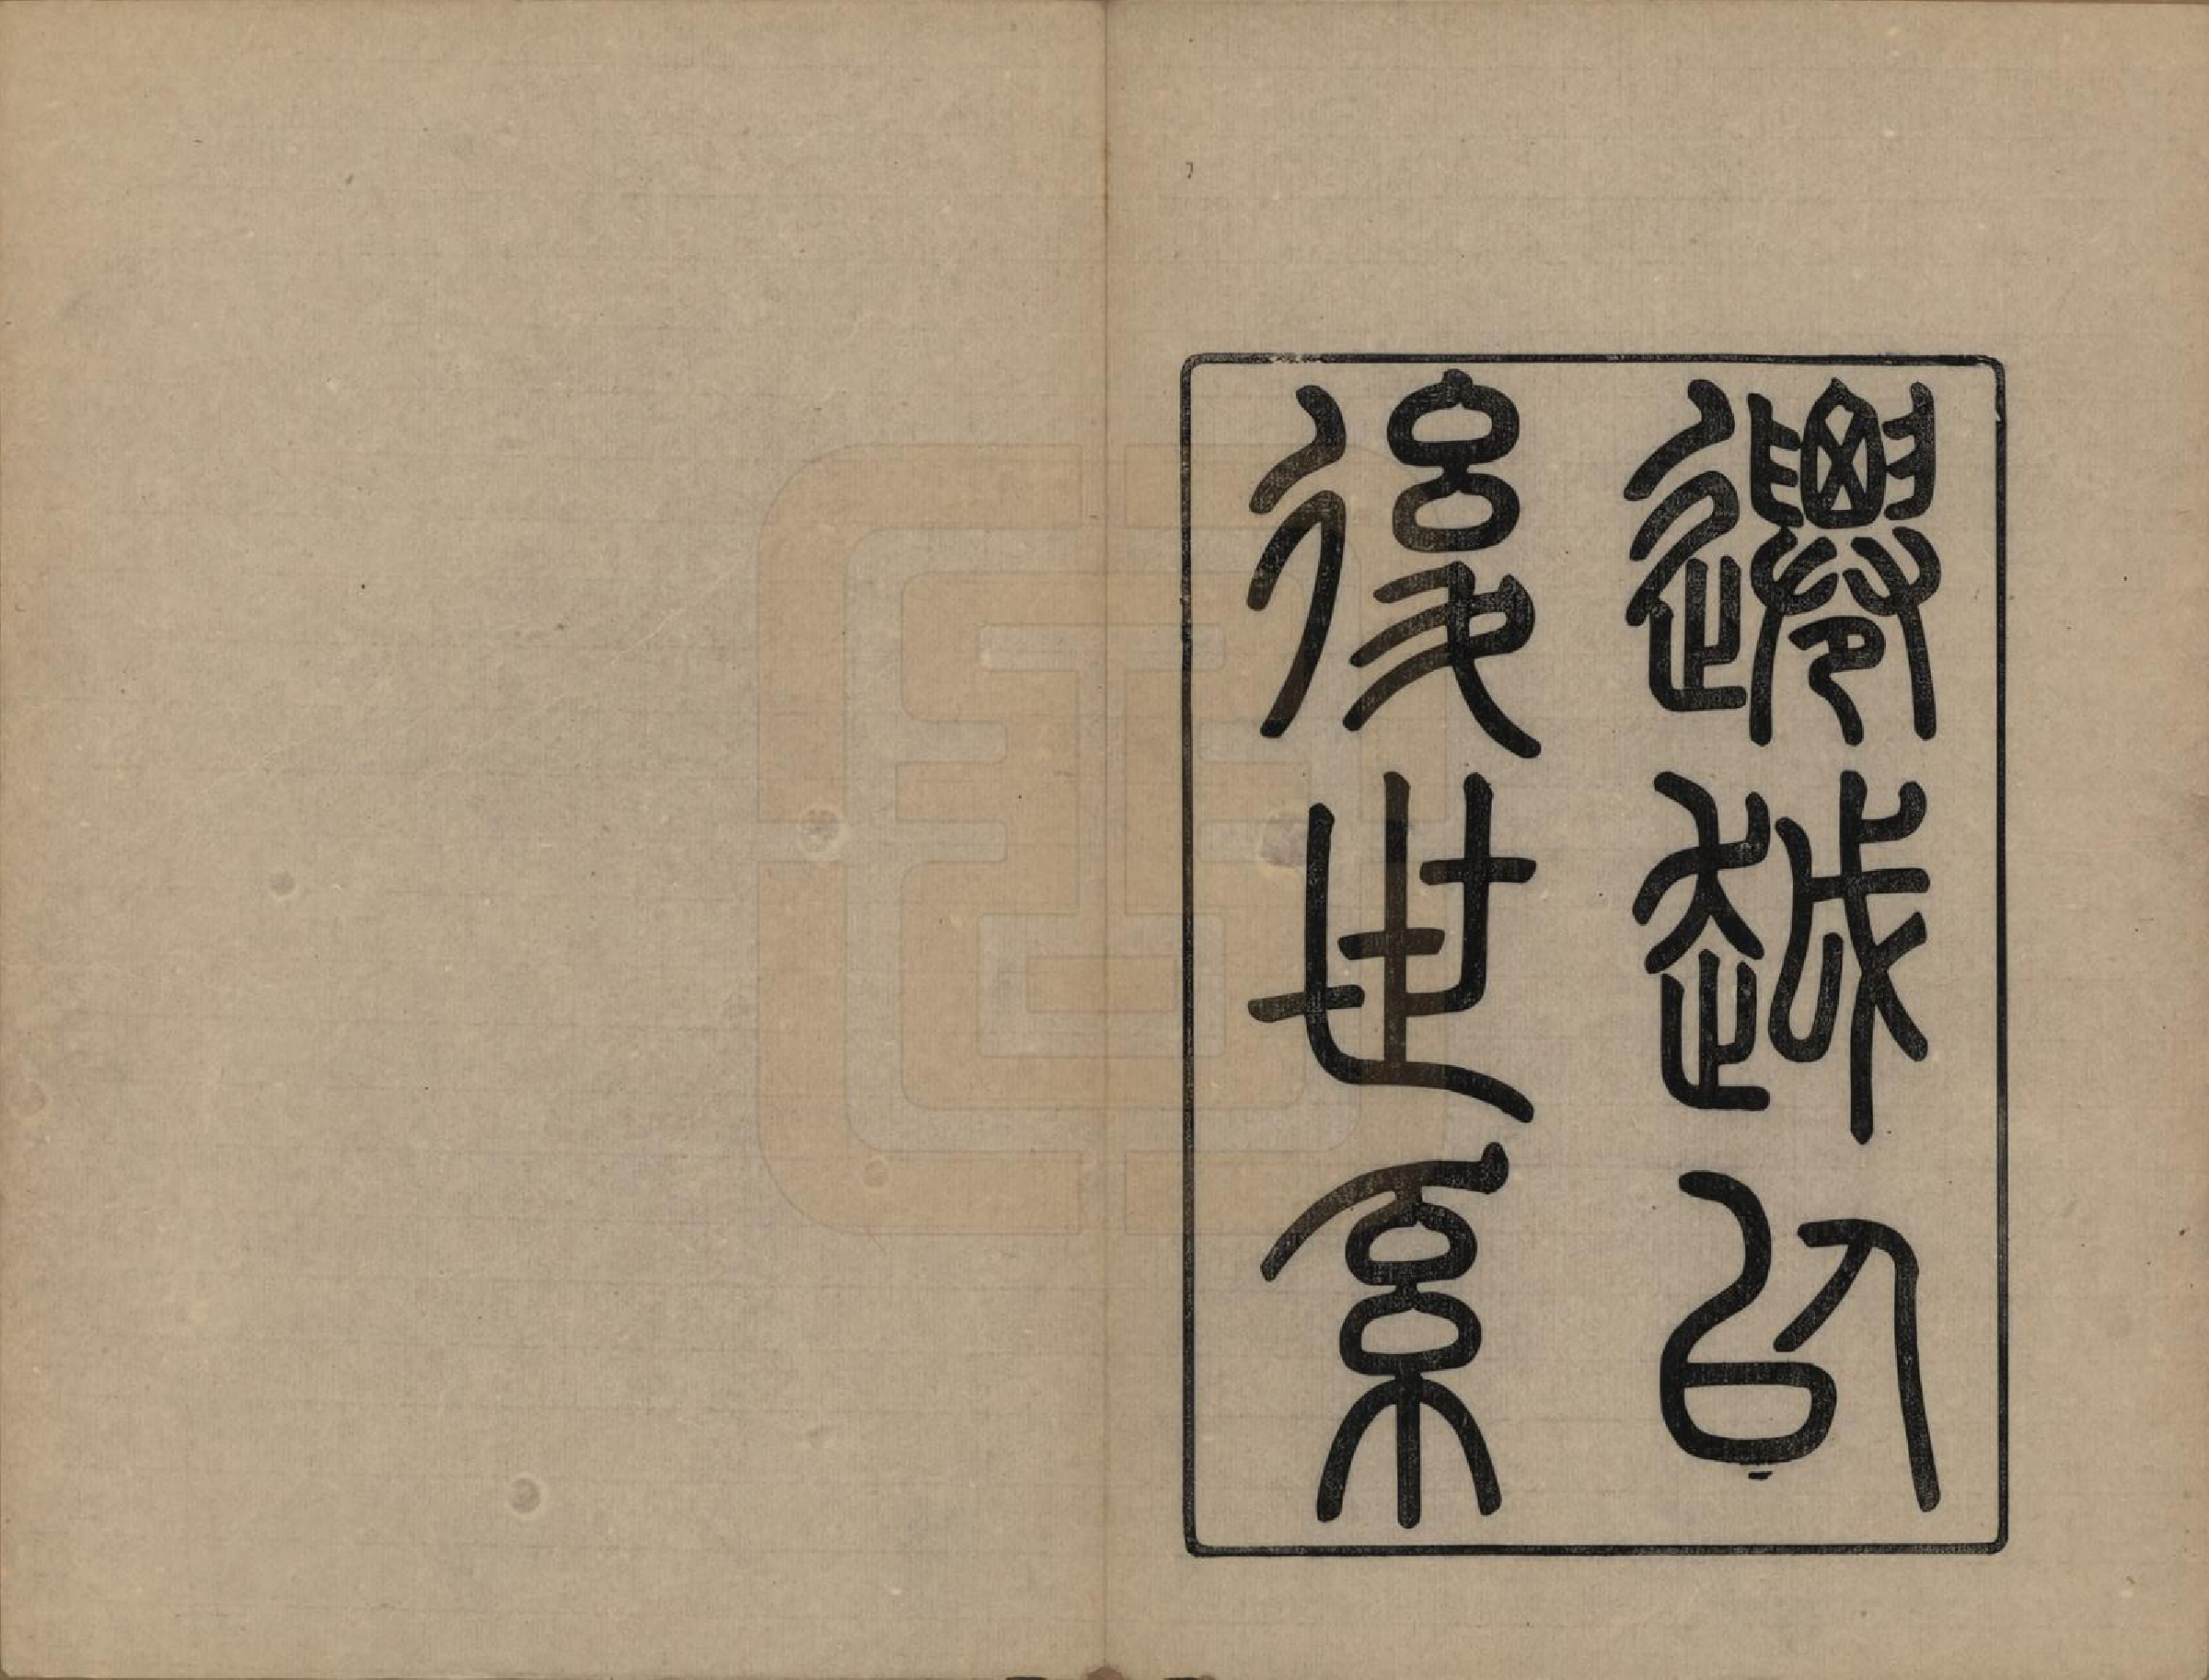 遷越以
後世系